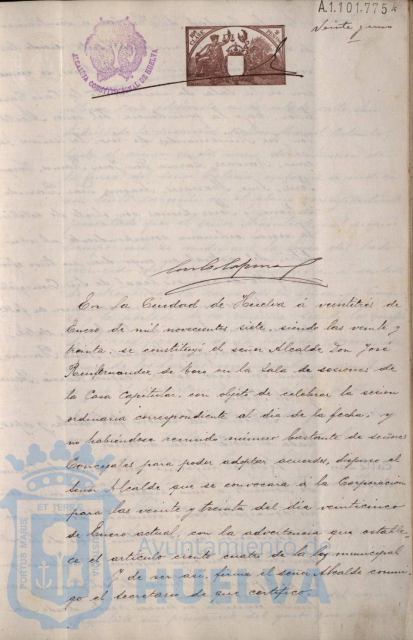 A.1.101.775
Veinte y uno
ALCALDIA CONSTITUCIONAL DE HUELVA
En la Ciudad de Huelva á veintitrés de
Enero de mil novecientos siete, siendo las veinte y
treinta, se constituyó el señor Alcalde Don José
de Toro en la Sala de sesiones de
la Casa Capitular, con objeto de celebrar la sesion
ordinaria correspondiente al dia de la fecha; y
no habiendose reunido número bastante de señores
Concejales para poder adoptar acuerdos, dispuso el
señor Alcalde que se convocara á la Corporación
para las veinte y treinta del dia veinticinco
de Enero actual, con la advertencia que estable-
ce el artículo ciento cuatro de la ley municipal
Y de ser asi, firma el señor Alcalde conmi-
go el secretario de que certifico.
PORTUS MARIS ET TERRÆ
Ayuntamiento de
HUELVA